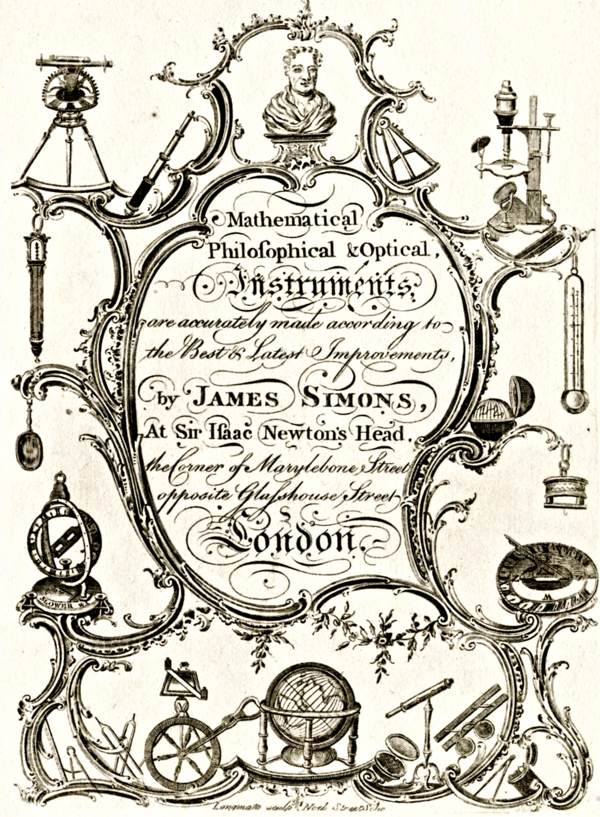 Mathematical
Philoſophical & Optical,
Instruments,
are accurately made according to
the Best & Latest Improvements,
by JAMES SIMONS,
At Sir Iſaac Newton's Head,
the Corner of Marylebone Street
opposite Glaſshouse Street
London.